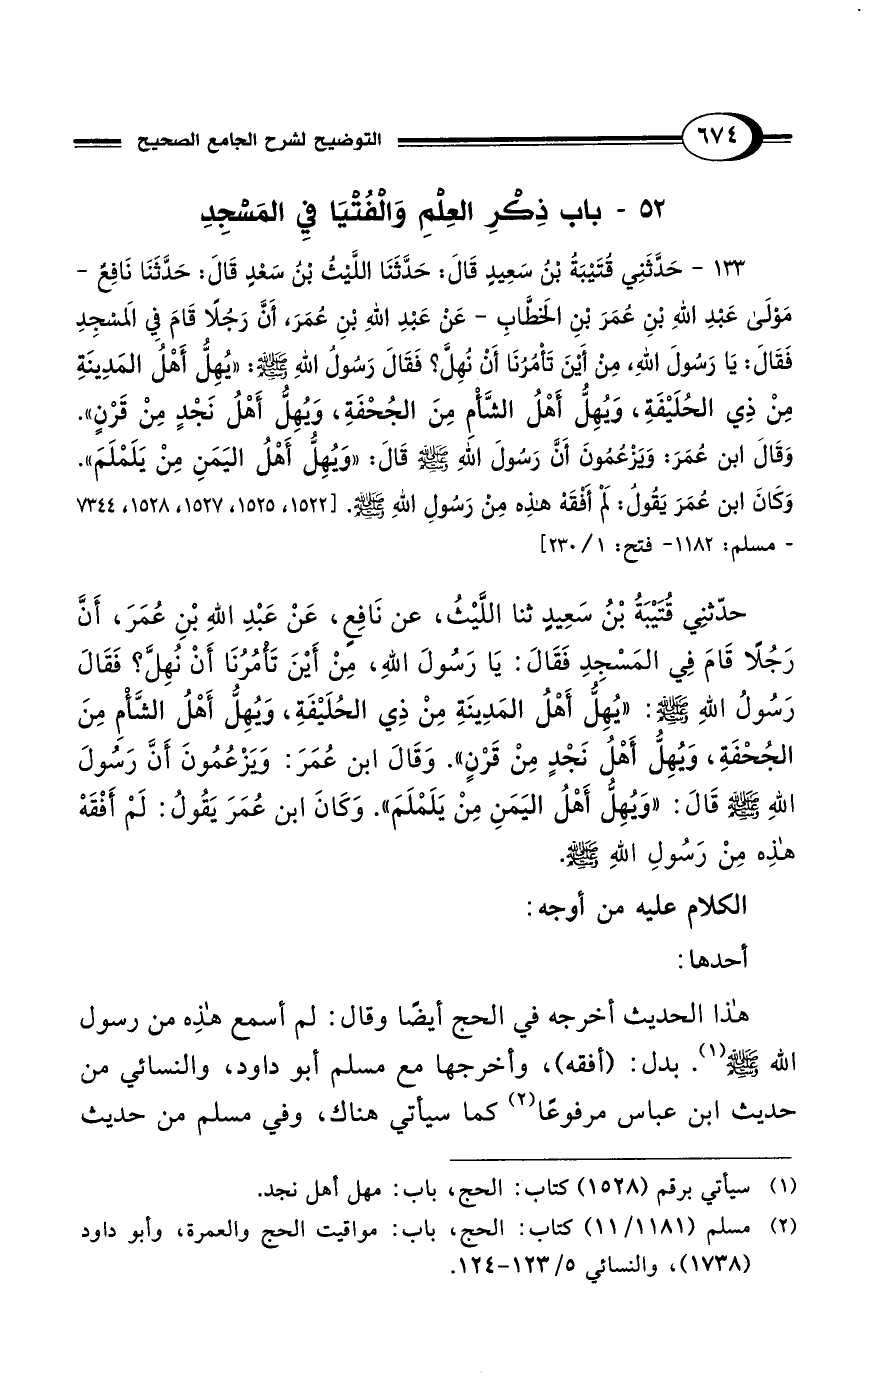 ٦٧٤ التوضيح لشرح الجامع الصحيح
٥٢ - باب ذِكْرِ العِلْمِ وَالْفُتْيَا فِي المَسْجِدِ
١٣٣ - حَدَّثَنِي قُتَيْبَةُ بْنُ سَعِيدٍ قَالَ: حَدَّثَنَا اللَّيْثُ بْنُ سَعْدٍ قَالَ: حَدَّثَنَا نَافِعٌ -
مَوْلَىٰ عَبْدِ اللهِ بْنِ عُمَرَ بْنِ الخَطَّابِ - عَنْ عَبْدِ اللهِ بْنِ عُمَرَ، أَنَّ رَجُلًا قَامَ فِي المَسْجِدِ
فَقَالَ: يَا رَسُولَ اللهِ، مِنْ أَيْنَ تَأْمُرُنَا أَنْ نُهِلَّ؟ فَقَالَ رَسُولُ اللهِ ﷺ: «يُهِلُّ أَهْلُ المَدِينَةِ
مِنْ ذِي الحُلَيْفَةِ، وَيُهِلُّ أَهْلُ الشَّأْمِ مِنَ الجُحْفَةِ، وَيُهِلُّ أَهْلُ نَجْدٍ مِنْ قَرْنٍ».
وَقَالَ ابن عُمَرَ: وَيَزْعُمُونَ أَنَّ رَسُولَ اللهِ ﷺ قَالَ: «وَيُهِلُّ أَهْلُ اليَمَنِ مِنْ يَلَمْلَمَ».
وَكَانَ ابن عُمَرَ يَقُولُ: لَمْ أَفْقَهْ هٰذِه مِنْ رَسُولِ اللهِ ﷺ. [١٥٢٢، ١٥٢٥، ١٥٢٧، ١٥٢٨، ٧٣٤٤
- مسلم: ١١٨٢- فتح: ١/ ٢٣٠]
حدّثنِي قُتَيْبَةُ بْنُ سَعِيدٍ ثنا اللَّيْثُ، عن نَافِعٍ، عَنْ عَبْدِ اللهِ بْنِ عُمَرَ، أَنَّ
رَجُلًا قَامَ فِي المَسْجِدِ فَقَالَ: يَا رَسُولَ اللهِ، مِنْ أَيْنَ تَأْمُرُنَا أَنْ نُهِلَّ؟ فَقَالَ
رَسُولُ اللهِ ﷺ: «يُهِلُّ أَهْلُ المَدِينَةِ مِنْ ذِي الحُلَيْفَةِ، وَيُهِلُّ أَهْلُ الشَّأْمِ مِنَ
الجُحْفَةِ، وَيُهِلُّ أَهْلُ نَجْدٍ مِنْ قَرْنٍ». وَقَالَ ابن عُمَرَ: وَيَزْعُمُونَ أَنَّ رَسُولَ
اللهِ ﷺ قَالَ: «وَيُهِلُّ أَهْلُ اليَمَنِ مِنْ يَلَمْلَمَ». وَكَانَ ابن عُمَرَ يَقُولُ: لَمْ أَفْقَهْ
هٰذِه مِنْ رَسُولِ اللهِ ﷺ.
الكلام عليه من أوجه:
أحدها:
هٰذا الحديث أخرجه في الحج أيضًا وقال: لم أسمع هٰذِه من رسول
الله ﷺ(١). بدل: (أفقه)، وأخرجها مع مسلم أبو داود، والنسائي من
حديث ابن عباس مرفوعًا(٢) كما سيأتي هناك، وفي مسلم من حديث
(١) سيأتي برقم (١٥٢٨) كتاب: الحج، باب: مهل أهل نجد.
(٢) مسلم (١١٨١/ ١١) كتاب: الحج، باب: مواقيت الحج والعمرة، وأبو داود
(١٧٣٨)، والنسائي ٥/ ١٢٣-١٢٤.